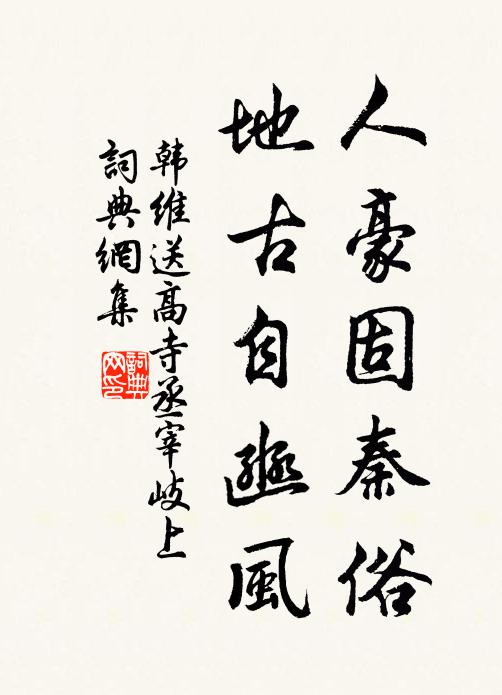 人豪固秦俗
地古自豳風
韓維送高寺丞宰岐上
詞典網集
詞典
网印